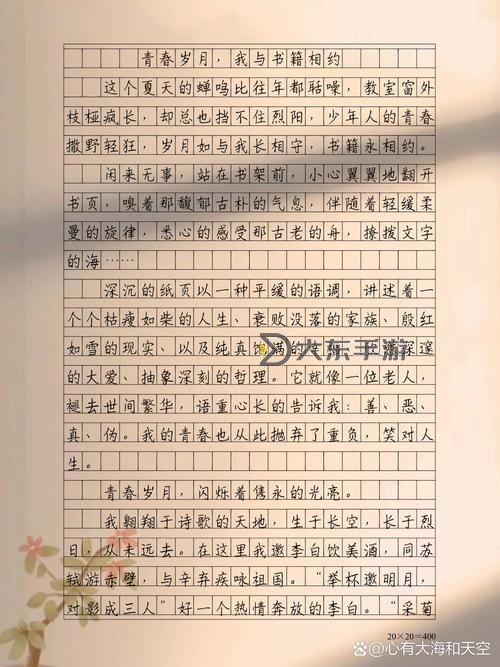 青春岁月，我与书籍相约
这个夏天的蝉鸣比往年都聒噪，教室窗外
枝桠疯长，却总也挡不住烈阳，少年人的青春
撒野轻狂，岁月如与我长相守，书籍永相约。
闲来无事，站在书架前，小心翼翼地翻开
书页，嗅着那馥郁古朴的气息，伴随着轻缓柔
曼的旋律，悉心的感受那古老的舟，撩拨文字
的海……
深沉的纸页以一种平缓的语调，讲述着一
个个枯瘦如柴的人生、衰败没落的家族、殷红
如雪的现实、以及纯真饱满的深邃
的大爱、抽象深刻的哲理。它就像一位老人，
褪去世间繁华，语重心长的告诉我：善、恶、
真、伪。我的青春也从此抛弃了重负，笑对人
生。
青春岁月，闪烁着隽永的光亮。
我翱翔于诗歌的天地，生于长空，长于烈
日，从未远去。在这里我邀李白饮美酒，同苏
轼游赤壁，与辛弃疾咏祖国。“举杯邀明月，
对影成三人”好一个热情奔放的李白。“采菊
20×20=400
大东手游
@心有大海和天空